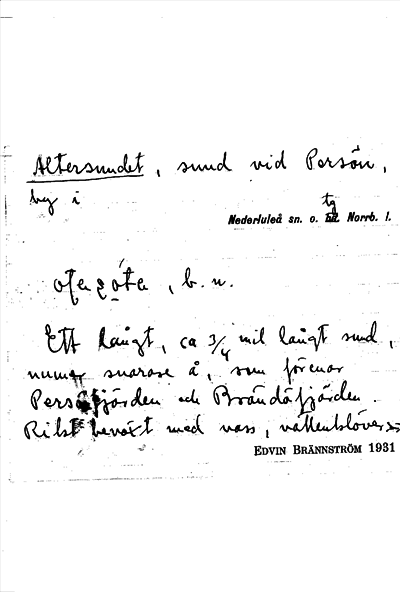 Altersundet, sund vid Persön,
by i
Nederluleå sn. o. tg Norrb. l.
, b. n.
Ett långt, ca 3/4 mil långt sund,
numer snarare å, som förenar
Persöfjärden och Brändöfjärden.
Rikt beväxt med vass, vattenklöver
EDVIN BRÄNNSTRÖM 1931